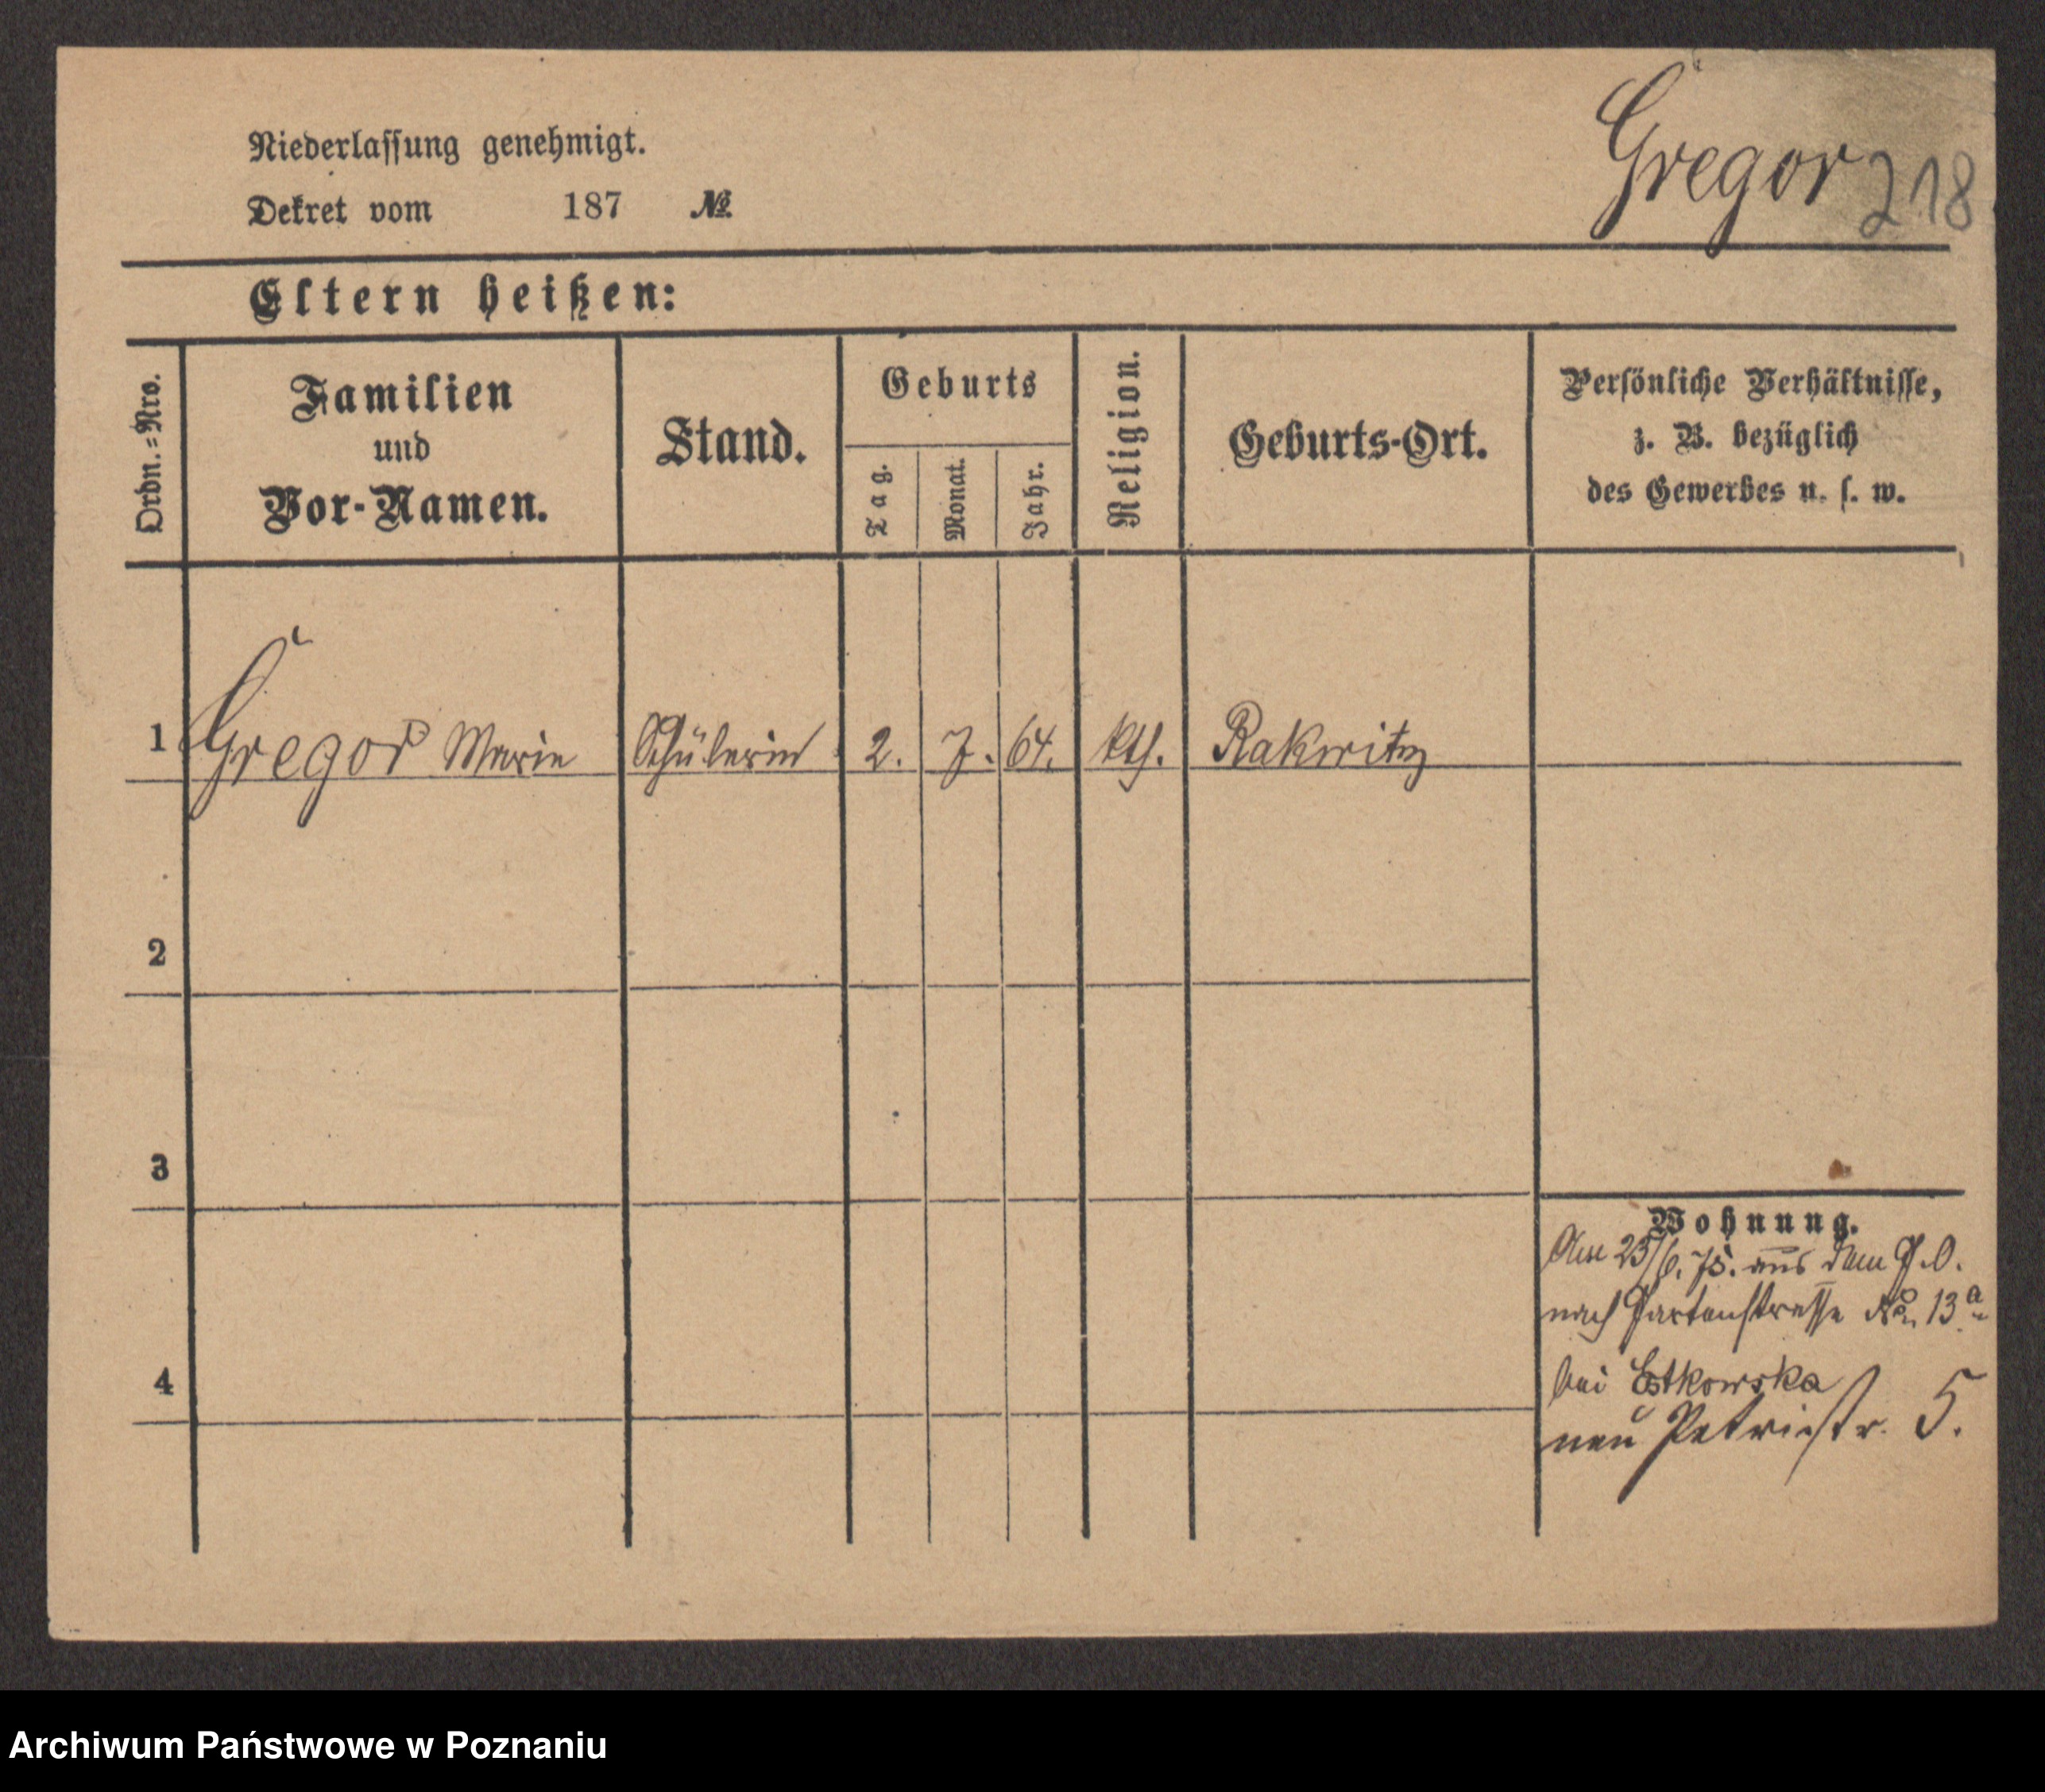 Niederlassung genehmigt.
Gregor 218
Dekret vom 187 №
Eltern heißen:
Ordn.=Nro.
Familien
und
Vor-Namen.
Stand.
Geburts
Tag.
Monat.
Jahr.
Religion.
Geburts-Ort.
Persönliche Verhältnisse,
z. B. bezüglich
des Gewerbes u. s. w.
1 Gregor Marie Schülerin 2. 7. 64. kth. Rakwitz
2
3
4
Wohnung.
23/6. 75. aus dem
nach Gartenstrasse No. 13 a
bei Estkowska
neu Petristr. 5.
Archiwum Państwowe w Poznaniu